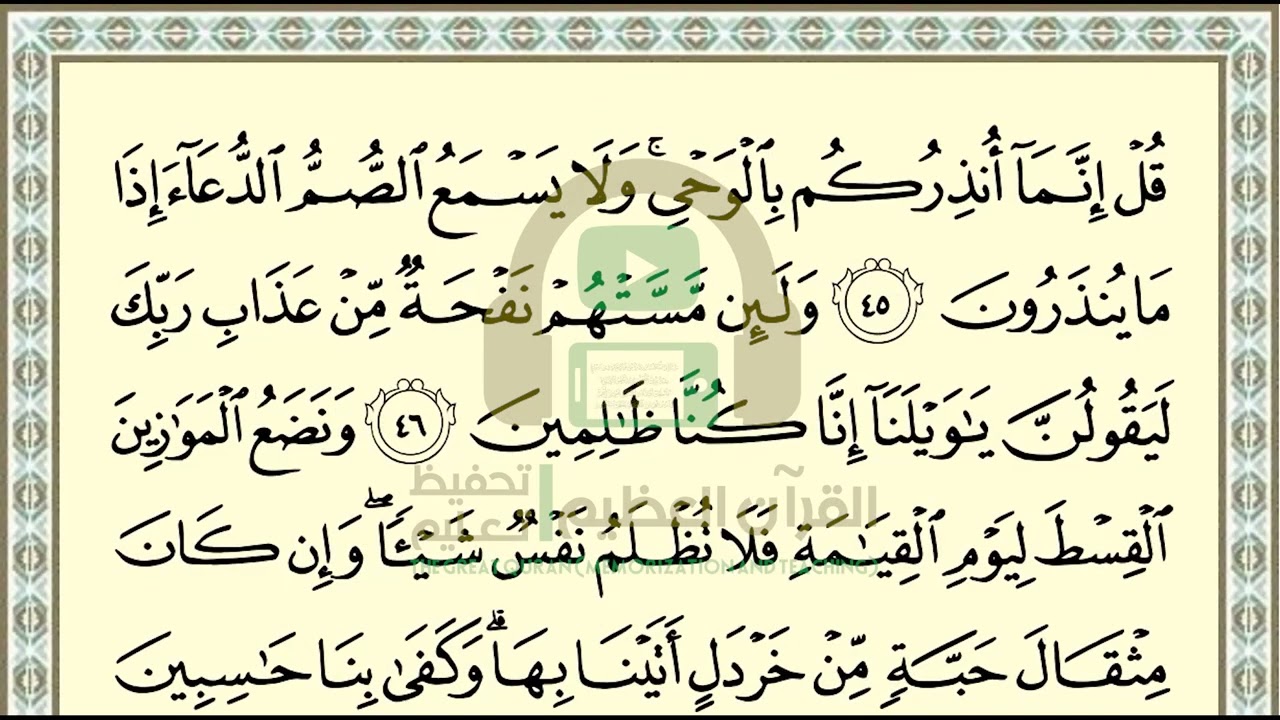 قُلْ إِنَّمَآ أُنذِرُكُم بِٱلْوَحْىِ ۚ وَلَا يَسْمَعُ ٱلصُّمُّ ٱلدُّعَآءَ إِذَا
مَا يُنذَرُونَ ٤٥ وَلَئِن مَّسَّتْهُمْ نَفْحَةٌ مِّنْ عَذَابِ رَبِّكَ
لَيَقُولُنَّ يَـٰوَيْلَنَآ إِنَّا كُنَّا ظَـٰلِمِينَ ٤٦ وَنَضَعُ ٱلْمَوَٰزِينَ
القرآن العظيم | تحفيظ تعليم
ٱلْقِسْطَ لِيَوْمِ ٱلْقِيَـٰمَةِ فَلَا تُظْلَمُ نَفْسٌ شَيْـًٔا ۖ وَإِن كَانَ
THE GREAT QURAN (MEMORIZATION AND TEACHING)
مِثْقَالَ حَبَّةٍ مِّنْ خَرْدَلٍ أَتَيْنَا بِهَا ۗ وَكَفَىٰ بِنَا حَـٰسِبِينَ